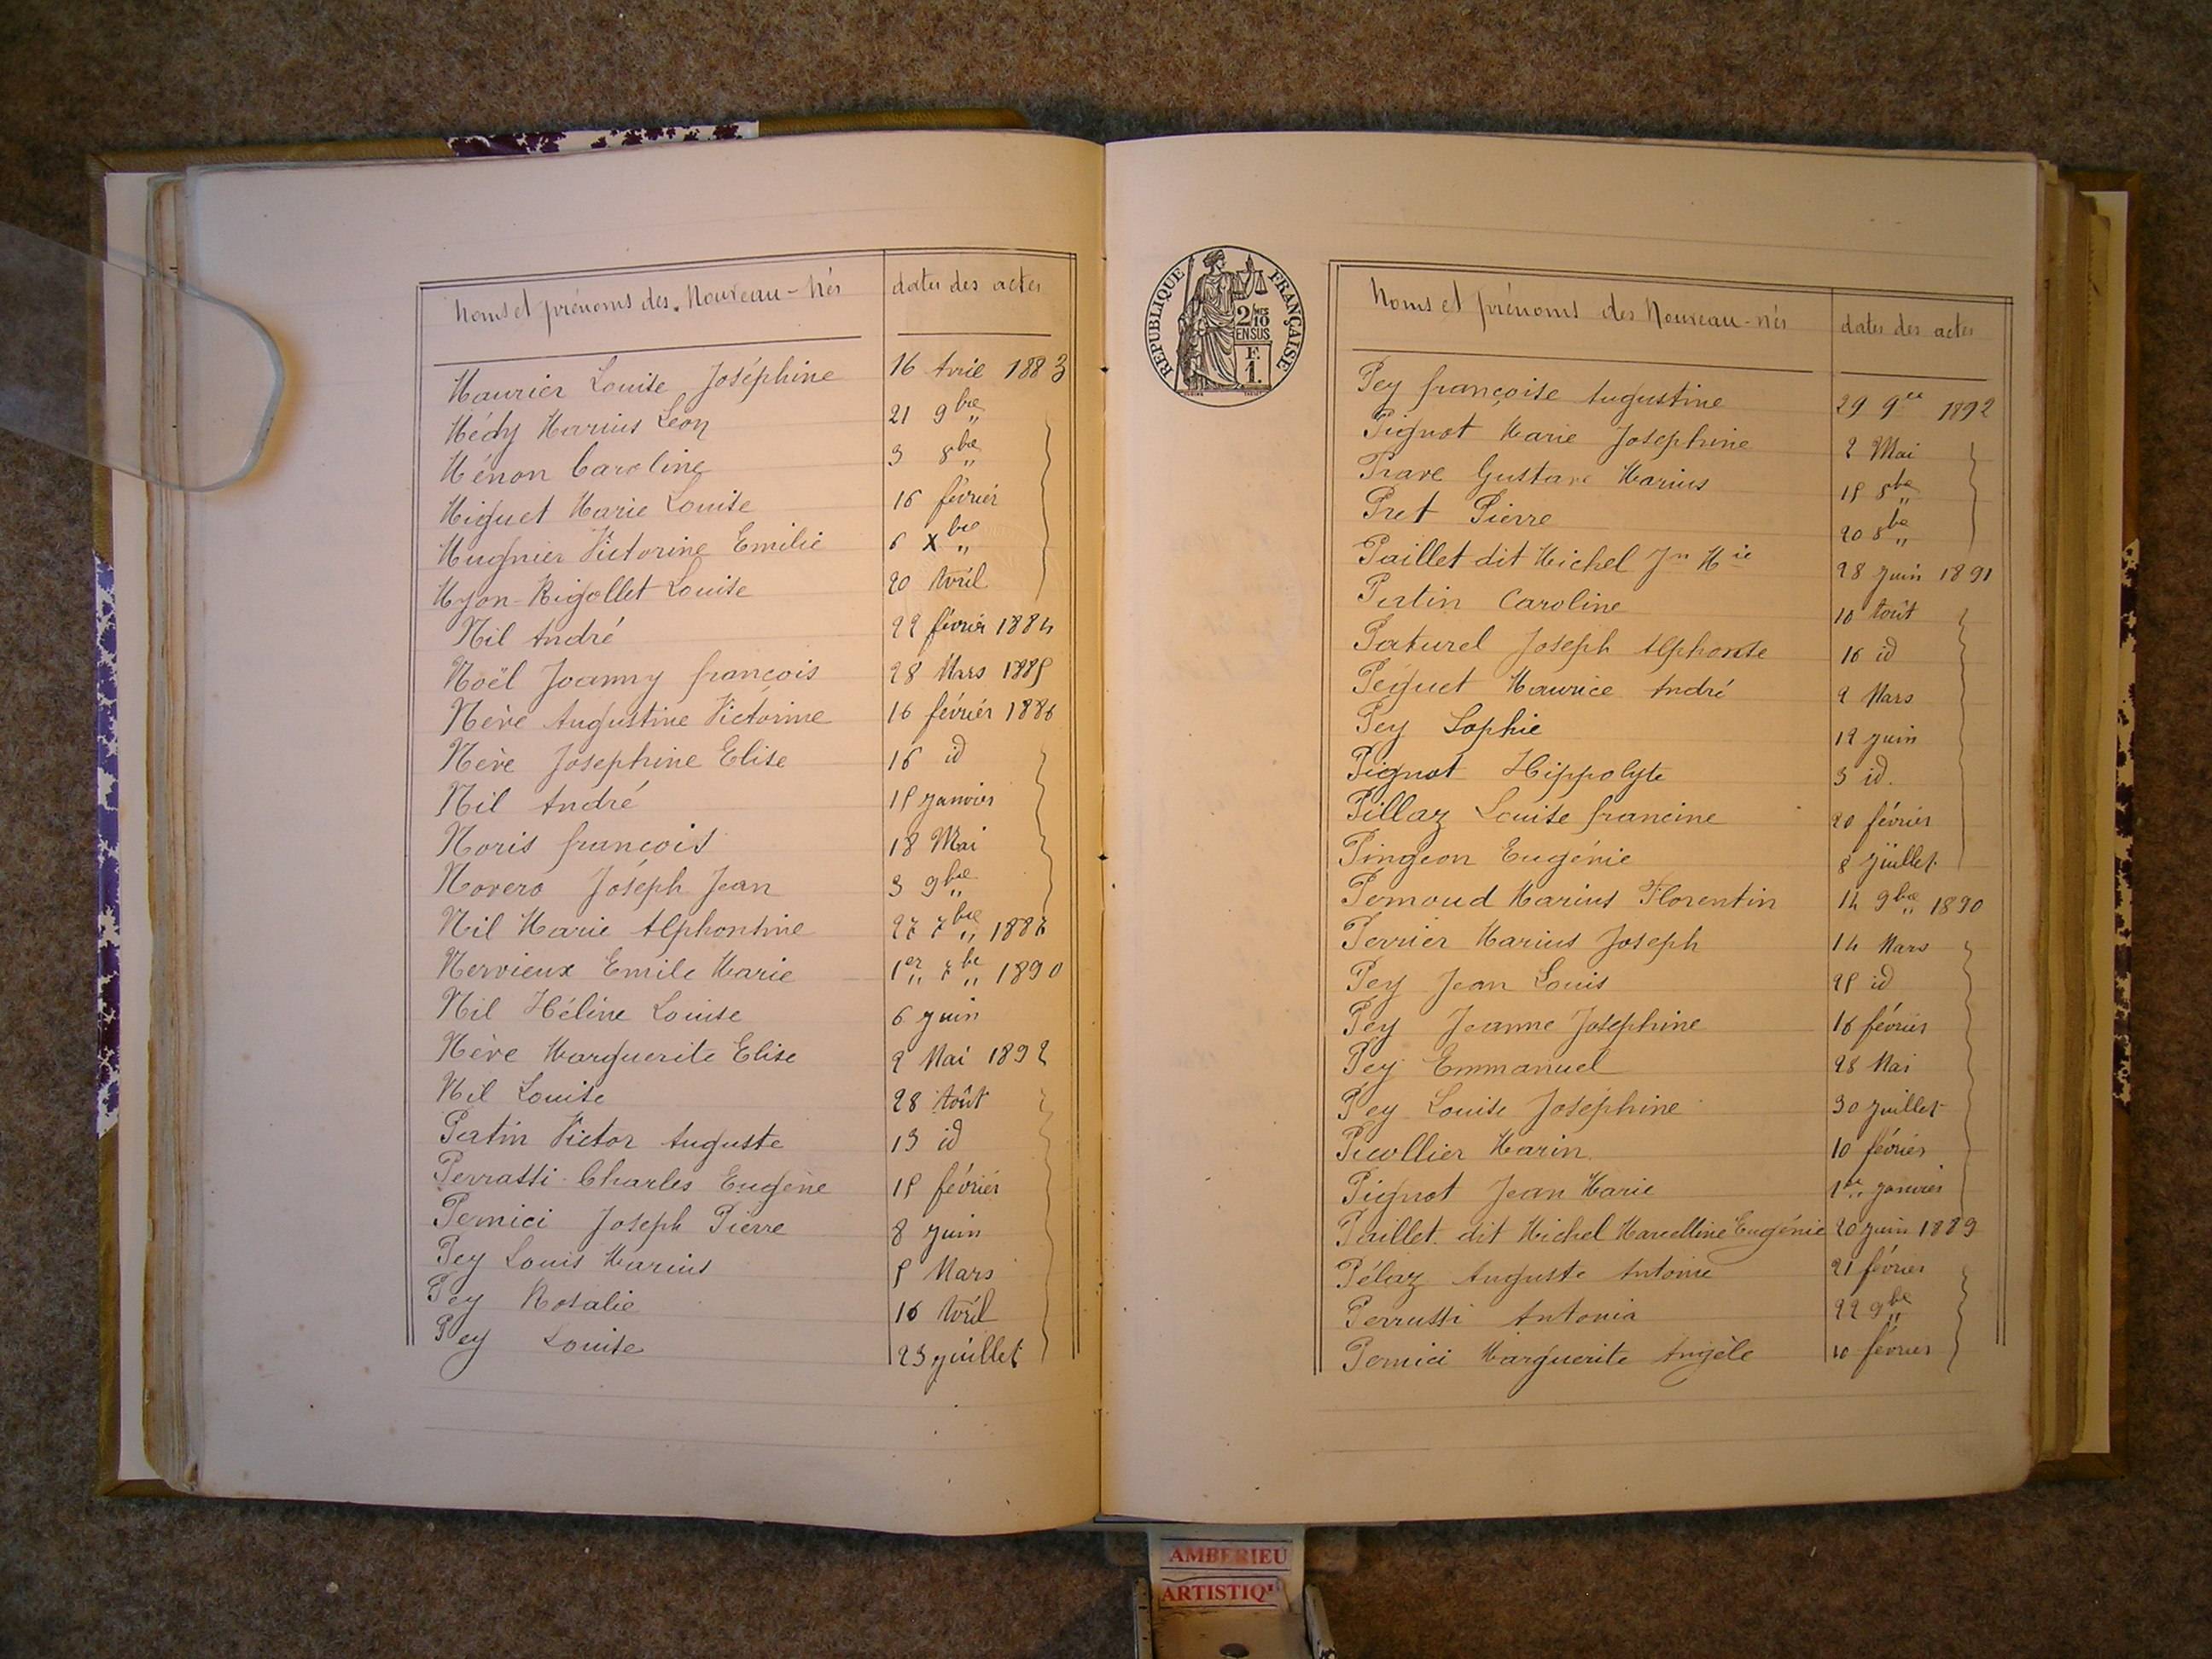 Noms et prénoms des Nouveau-Nés dates des actes
Maurier Louise Joséphine 16 Avril 1883
Médy Marius Léon 21 9bre "
Ménon Caroline 3 8bre "
Miguet Marie Louise 16 février
Mugnier Victorine Emilie 6 Xbre "
Myon-Rigollet Louise 20 Avril
Nil André 22 février 1884
Noël Joanny françois 28 Mars 1885
Nève Augustine Victorine 16 février 1886
Nève Joséphine Elise 16 id
Nil André 15 janvier
Noris françois 18 Mai
Novero Joseph Jean 3 9bre "
Nil Marie Alphonsine 27 7bre "
Nervieux Emile Marie 1er 7bre " 1890
Nil Héline Louise 6 juin
Nève Marguerite Elise 2 Mai 1892
Nil Louise 28 Août
Patin Victor Auguste 13 id
Perrassi Charles Eugène 15 février
Pernici Joseph Pierre 8 juin
Pey Louis Marius 5 Mars
Pey Rosalie 16 Avril
Pey Louise 23 juillet
REPUBLIQUE FRANÇAISE
2/10 MES
EN SUS
F.
1.
Noms et prénoms des Nouveau-nés dates des actes
Pey françoise Augustine 29 9bre 1892
Pignot Marie Josephine 2 Mai
Prave Gustave Marius 15 8bre "
Pret Pierre 20 8bre "
Paillet dit Michel Jn Mie 28 juin 1891
Patin Caroline 10 Août
Paturel Joseph Alphonse 16 id
Péguet Maurice André 2 Mars
Pey Sophie 12 juin
Pignot Hippolyte 3 id.
Pillaz Louise francine 20 février
Pingeon Eugénie 8 juillet
Pernoud Marius Florentin 14 9bre " 1890
Perrier Marius Joseph 14 Mars
Pey Jean Louis 25 id
Pey Jeanne Josephine 16 février
Pey Emmanuel 28 Mai
Pey Louise Joséphine 30 juillet
Picollier Marin 10 février
Pignot Jean Marie 1er janvier
Paillet dit Michel Marcelline Eugénie 20 juin 1889
Pélaz Auguste Antoine 21 février
Perrussi Antonia 22 9bre "
Pernici Marguerite Angèle 10 février
AMBERIEU
ARTISTIQ